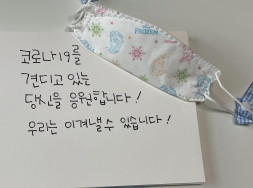 코로나19를
견디고 있는
당신을 응원합니다!
우리는 이겨낼 수 있습니다!
FROZEN